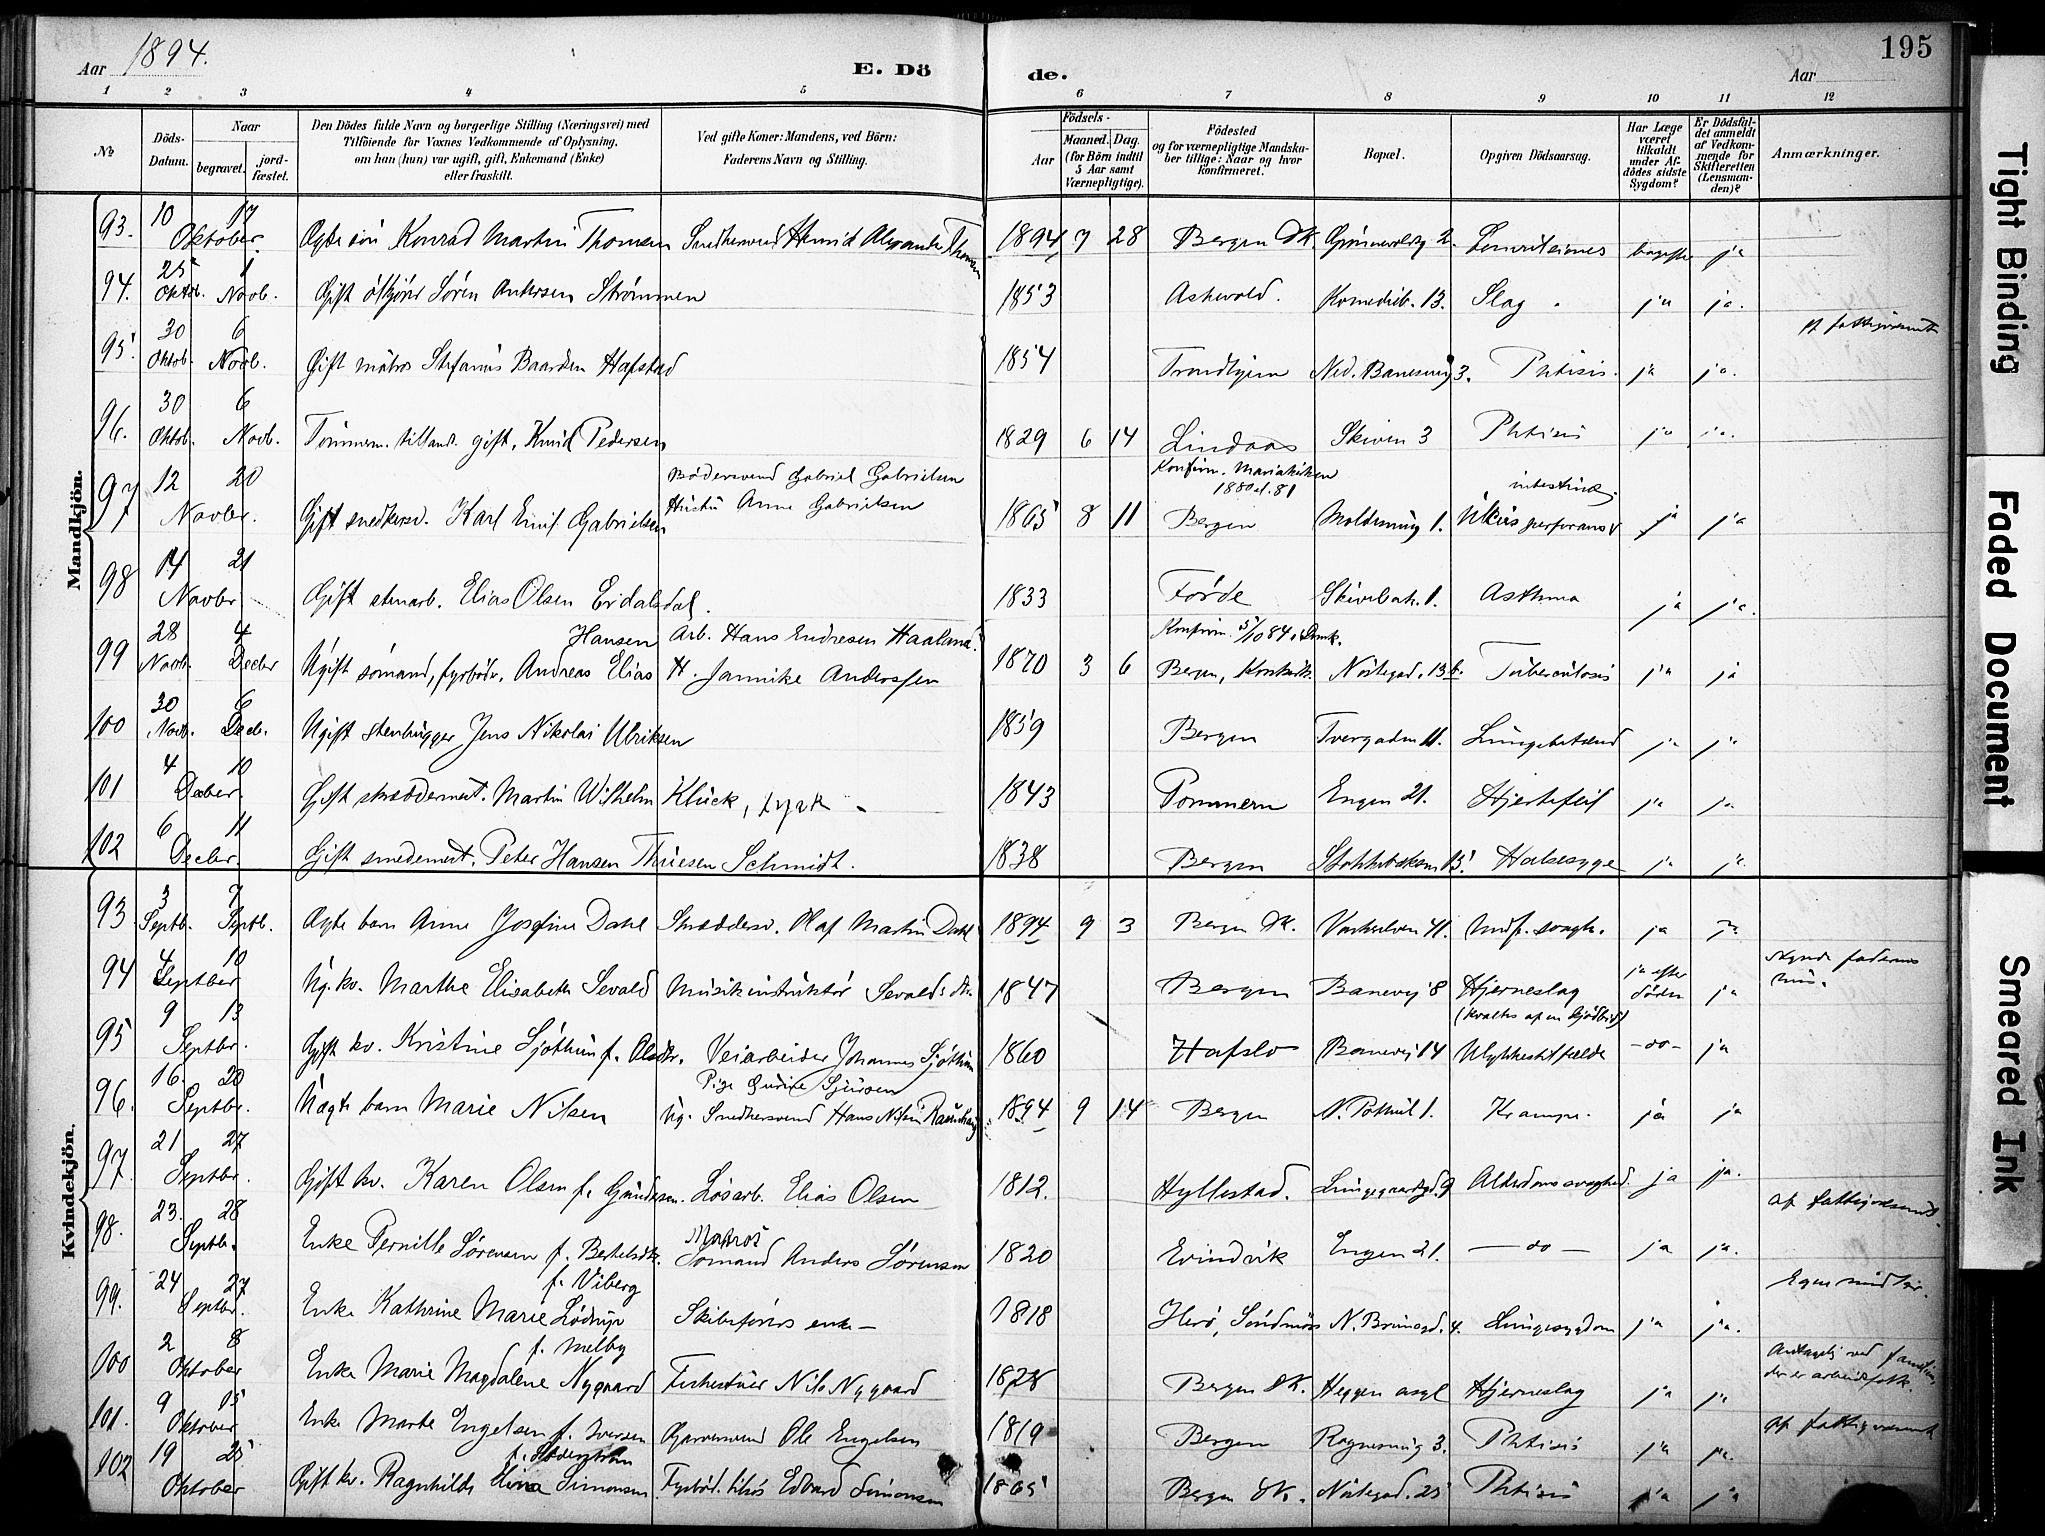 195
Aar 1894.
E. Döde.
Aar
1 2 3 4 5 6 7 8 9 10 11 12
№
Döds-Datum.
Naar
begravet.
jordfæstet.
Den Dödes fulde Navn og borgerlige Stilling (Næringsvei) med
Tilföiende for Voxnes Vedkommende af Oplysning,
om han (hun) var ugift, gift, Enkemand (Enke)
eller fraskilt.
Ved gifte Koner: Mandens, ved Börn:
Faderens Navn og Stilling.
Födsels-
Aar
Maaned. Dag.
(for Börn indtil
5 Aar samt
Værnepligtige).
Födested
og for værnepligtige Mandska-
ber tillige: Naar og hvor
konfirmeret.
Bopæl.
Opgiven Dödsaarsag.
Har Læge
været
tilkaldt
under Af-
dödes sidste
Sygdom?
Er Dödsfal-
det anmeldt
af Vedkom-
mende for
Skifteretten
(Lensman-
den)?
Anmærkninger.
Mandkjön.
93. 10 17 Oktober Ægte sön Konrad Martin Thomsen 1894 7 28 Bergen Dk. ja
94. 25 Oktob. 1 Novb. Gift Søren Andersen Strømmen 1853 Askvold. 13. Slag ja ja.
95. 30 Oktob. 6 Novb. Gift matros Stefanus Baardsen Hafstad 1854 Trondhjem 3. Phtisis. ja ja.
96. 30 Oktob. 6 Novb. Tømmerm. gift, Knud Pedersen 1829 6 14 Lindaas Skiven 3 Phtisis ja ja.
97 12 20 Novbr. Gift snedkersv. Karl Emil Gabrielsen Bødersvend Gabriel Gabrielsen
Hustru Anne Gabrielsen 1865 8 11 Konfirm. Mariakirken
1880 el. 81
Bergen 1. Ulcus perforans ja ja
98 14 21 Novbr Gift stenarb. Elias Olsen Eidalsdal. 1833 Førde 1. Asthma ja ja.
99 28 Novb. 4 Decbr Ugift sømand, fyrbød., Andreas Elias Hansen Arb. Hans Endresen Haaland.
H. Jannike Anderssen 1870 3 6 Konfirm. 5/10 84 i Domk.
Bergen, Nøstegad. 13 b. Tuberculosis ja ja
100 30 Novb. 6 Decb. Ugift stenhugger Jens Nikolai Ulriksen 1859 Bergen Tvergaden 11. Lungebetænd ja ja
101 4 10 Decber. Gift skræddermest. Martin Wilhelm Klück, tysk 1843 Pommern Engen 21. Hjertefeil ja ja
102 6 11 Decbr. Gift smedemest. Peter Hansen Thuesen Schmidt. 1838 Bergen 15. Halssyge ja ja.
Kvindekjön.
93 3 Septb. 7 Septb. Ægte barn Anne Josefine Dahl Skræddersv. Olaf Martin Dahl 1894 9 3 Bergen Dk. 41. Medf. svagh. ja ja
94 4 10 Septber Ug. kv. Marthe Elisabeth Sevald Musikinstruktør Sevalds dtr. 1847 Bergen Banevei 8 Hjerneslag ja efter døden ja
95 9 13 Septbr. Gift kv. Kristine Sjøthun f. Olsdtr. Veiarbeider Johannes Sjøthun 1860 Hafslo Banevei 14 (kvaltes af en kjødbit)
Ulykkestilfælde -do- ja
96. 16. 20 Septbr. Uægte barn Marie Nilsen Pige Gurine Sjursen
Ug. Snedkersvend Hans Nilsen 1894 9 14 Bergen 1. Krampe. ja ja
97. 21 27 Septbr. Gift kv. Karen Olsen f. Gundersen. Løsarb. Elias Olsen 1812. Hyllestad. 9 Alderdomssvaghed. ja ja.
98. 23. 28 Septb. Enke Pernille Sørensen f. Bertelsdtr. Matros
Sømand Anders Sørensen 1820 Evindvik Engen 21. — do — ja ja. af fattigvæsenet.
99. 24 27 Septbr. Enke Kathrine Marie Lødrup f. Viberg Skibsførers enke — 1818 Herø, Søndmør 4. Lungesygdom ja ja. Egne midler.
100 2 8 Oktober Enke Marie Magdalene Nygaard f. Melby Nils Nygaard 1828 Bergen Dk. Heggen asyl Hjerneslag ja ja. Antagelig ved familien,
der er arbeidsfolk.
101. 9 15 Oktober Enke Marte Engelsen f. Iversen Garversvend Ole Engelsen 1819 Bergen 3. Phtisis ja ja. af fattigvæsenet
102 19 25 Oktober Gift kv. Ragnhilda Simonsen Edvard Simonsen 1865 Bergen Nk. Nøstegad. 25 Phtisis ja ja
Tight Binding
Faded Document
Smeared Ink